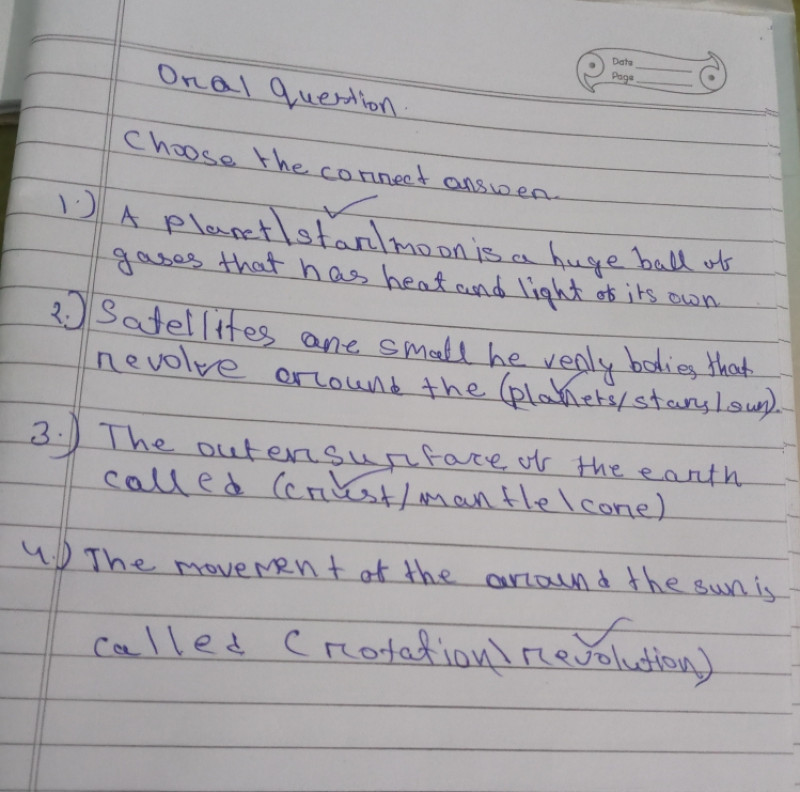 Date
Page
Oral Question.
Choose the correct answer.
1.) A planet\star/moon is a huge ball of
gases that has heat and light of its own
2.) Satellites are small he venly bodies that
revolve around the (planets/stars/sun).
3.) The outer surface of the earth
called (crust/mantle\core)
4.) The movement of the around the sun is
called (rotation\revolution)